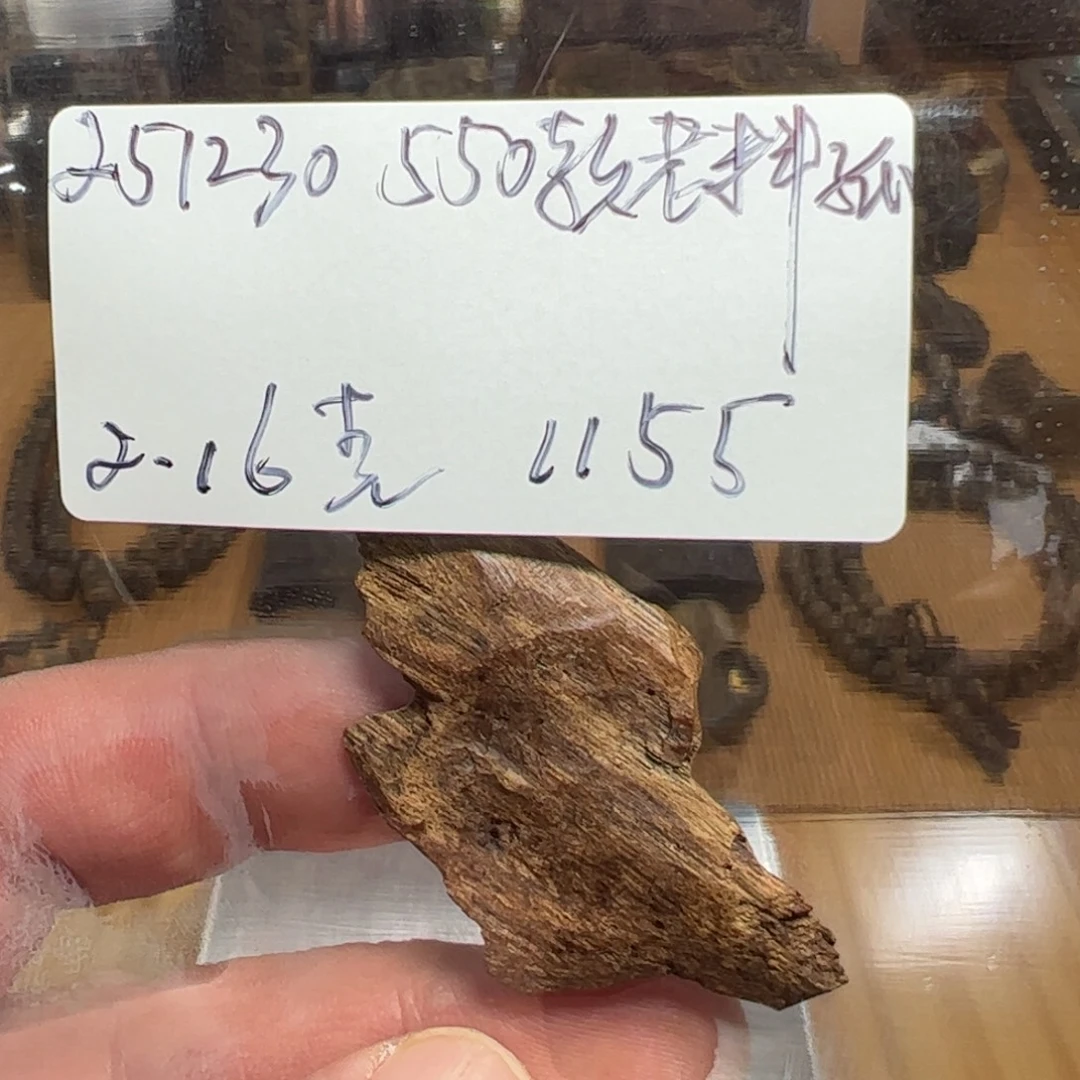 251230 550款老料孤
2.16克 1155